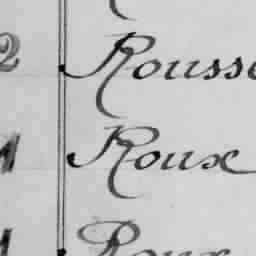 2 Rousse
1 Roux
1 Roux